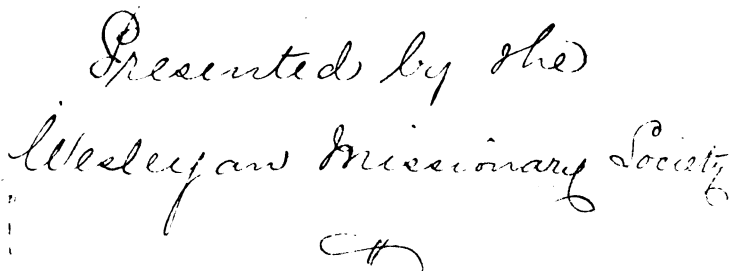 Presented by the
Wesleyan Missionary Society